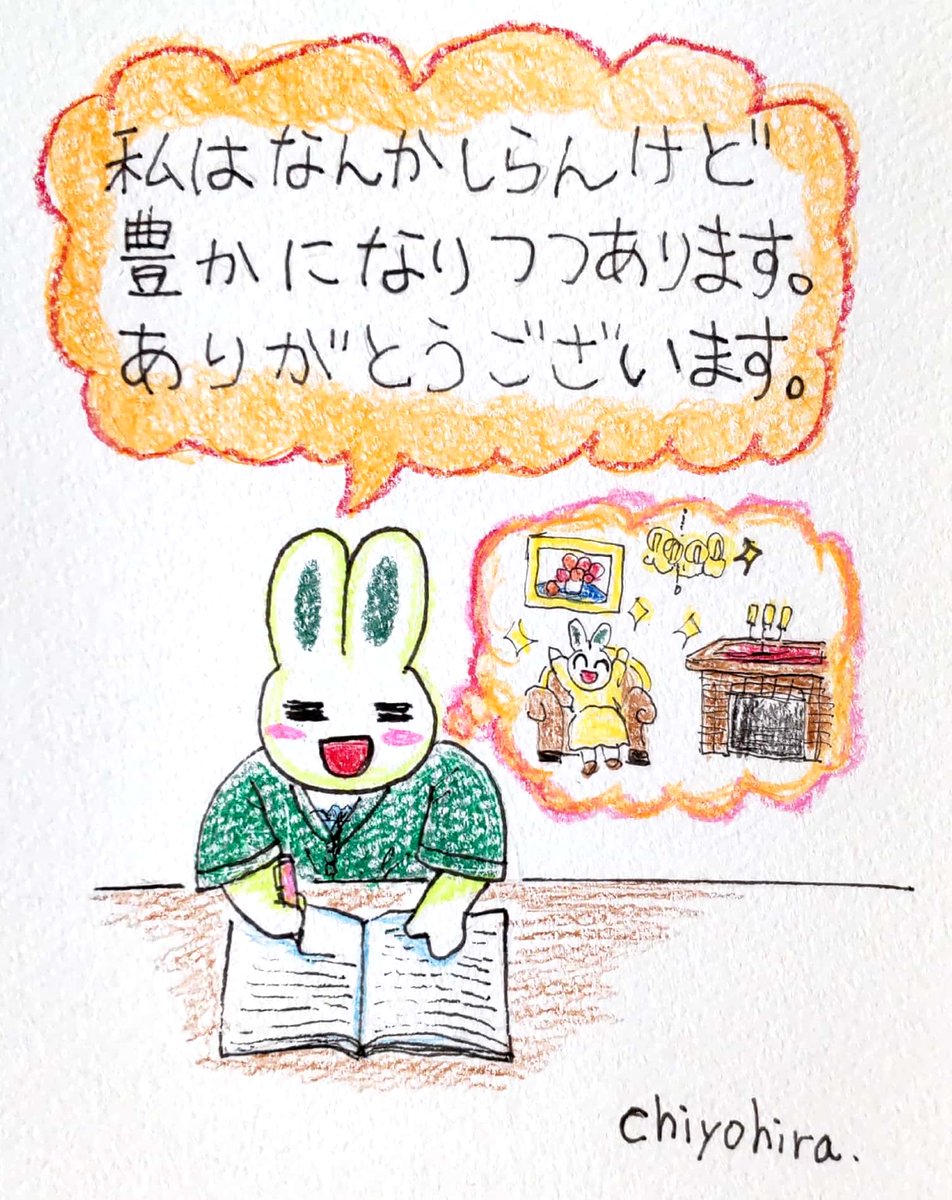 私はなんかしらんけど
豊かになりつつあります。
ありがとうございます。
chiyohira.